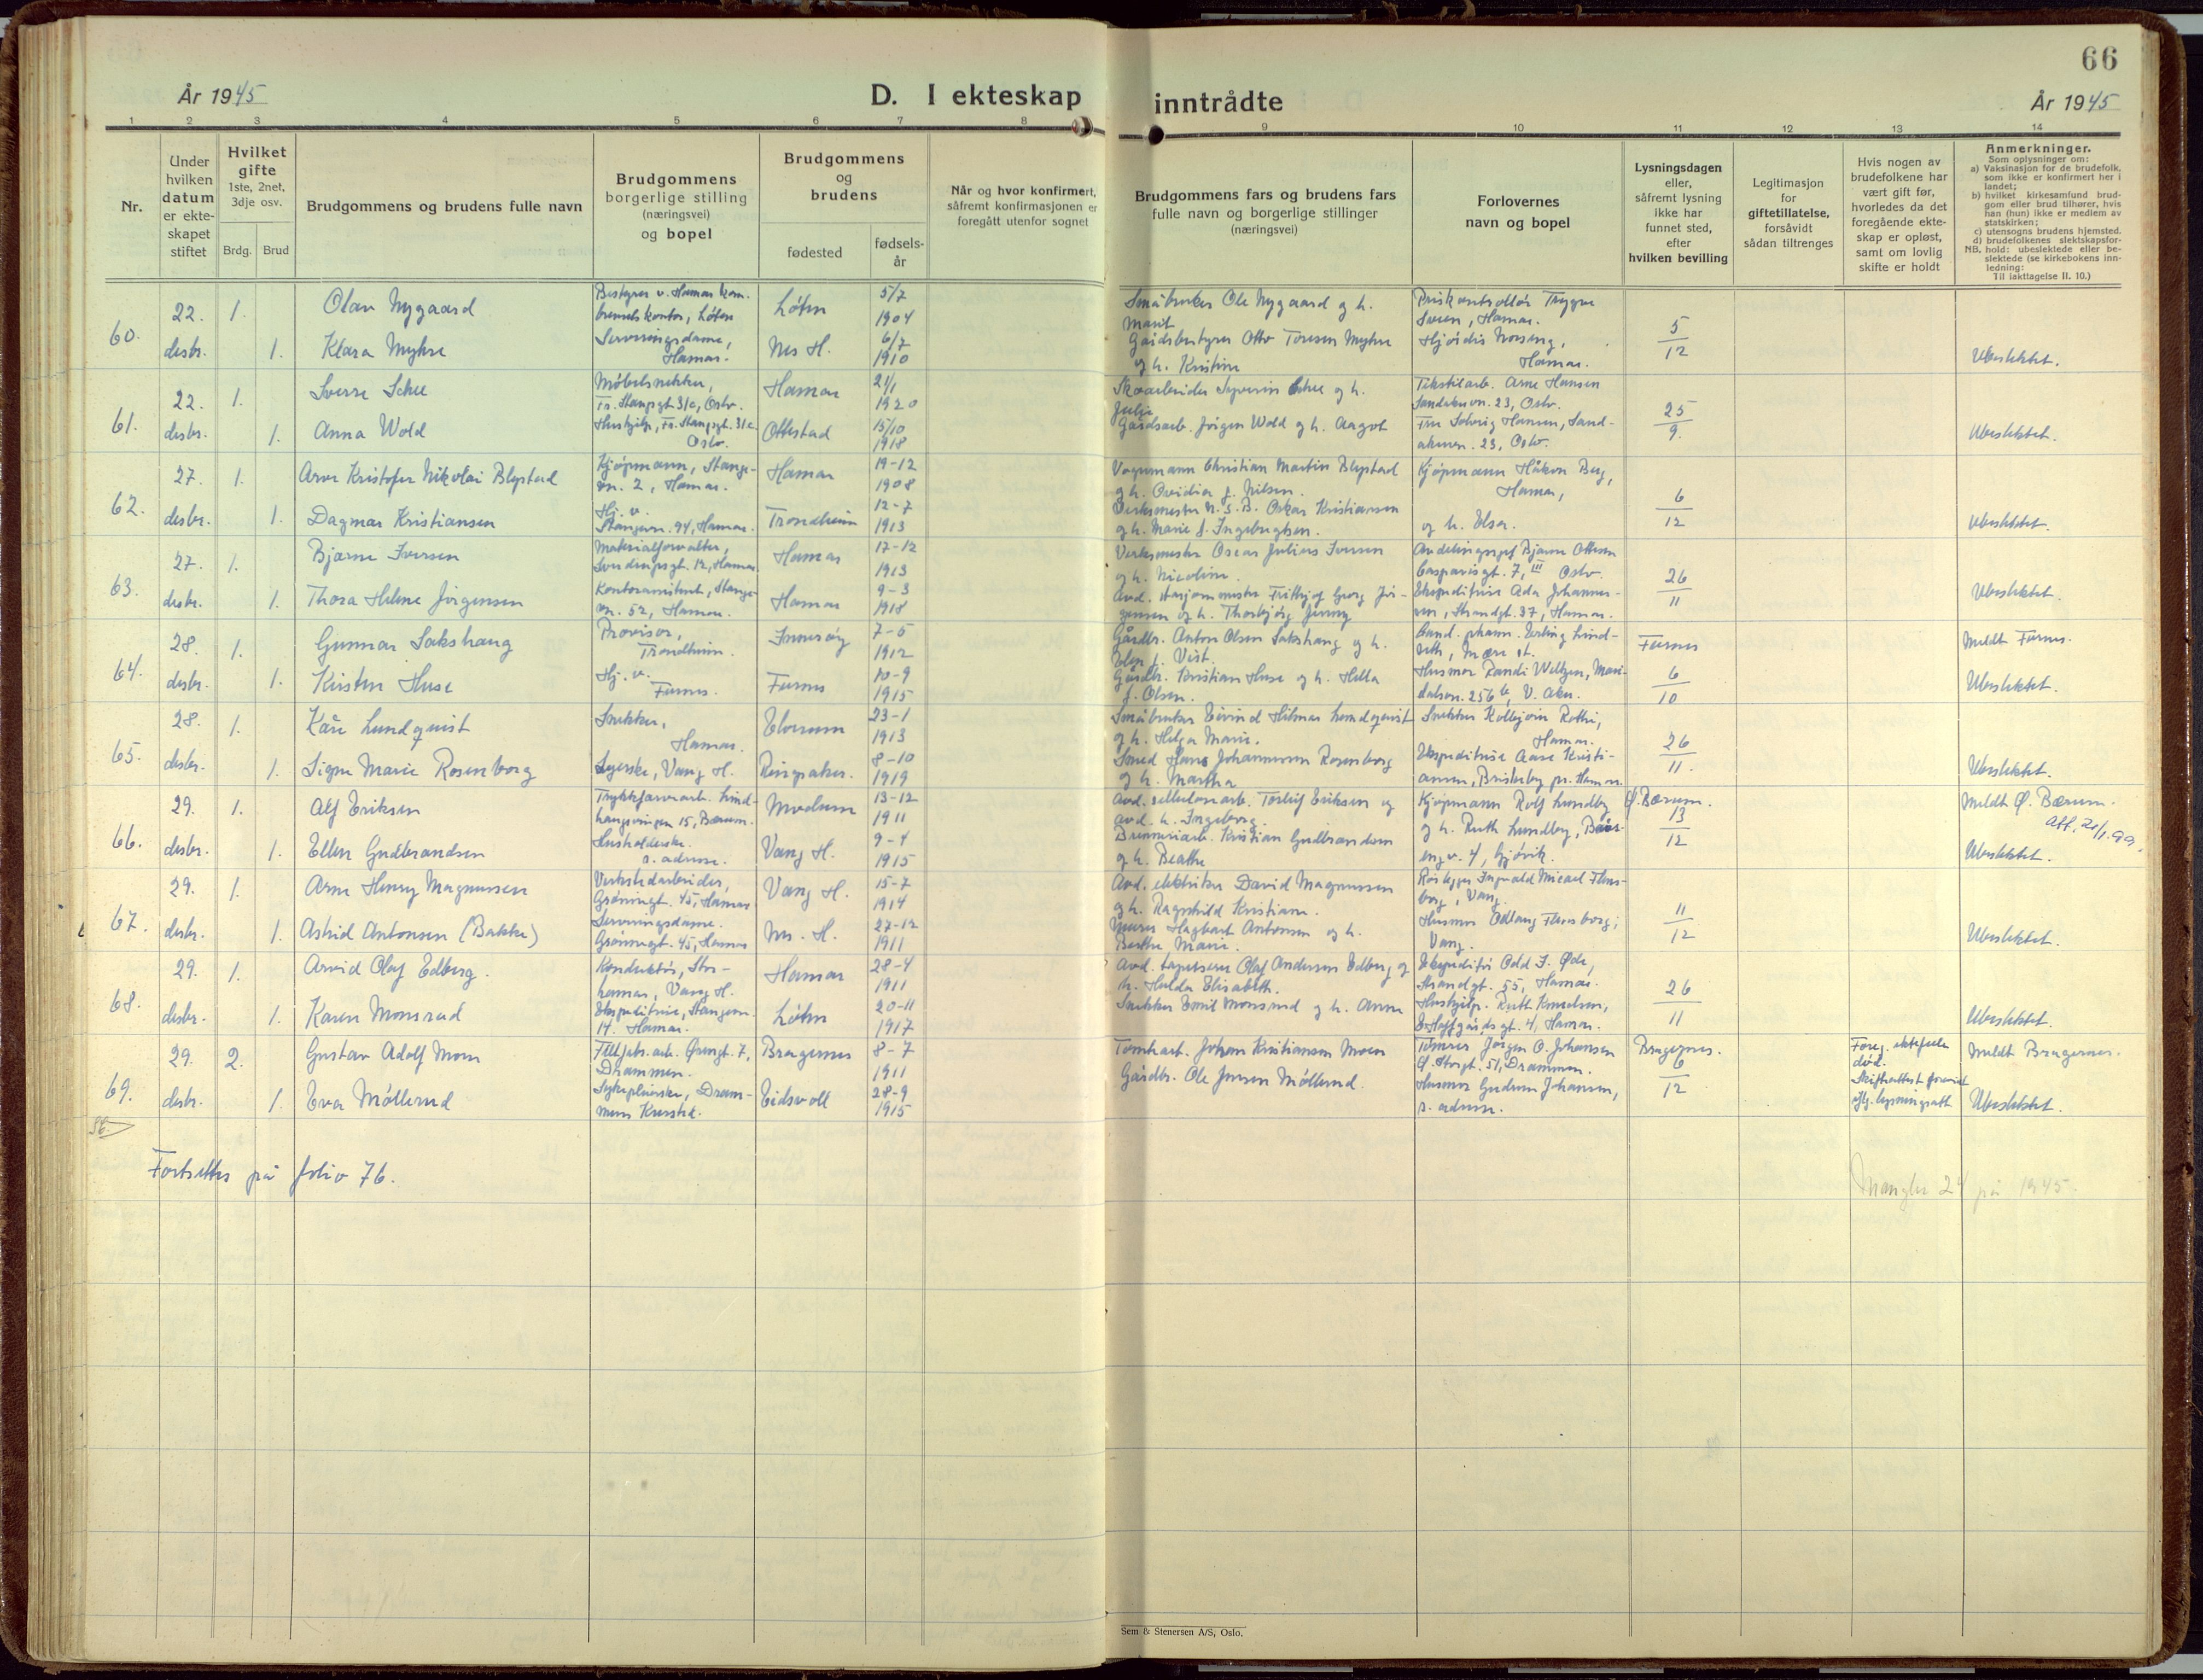 66
År 1945
D. I ekteskap inntrådte
År 1945
1 2 3 4 5 6 7 8 9 10 11 12 13 14
Nr.
Under hvilken datum er ekteskapet stiftet
Hvilket gifte
1ste, 2net, 3dje osv.
Brdg. Brud
Brudgommens og brudens fulle navn
Brudgommens borgerlige stilling (næringsvei) og bopel
Brudgommens og brudens
fødested
fødselsår
Når og hvor konfirmert, såfremt konfirmasjonen er foregått utenfor sognet
Brudgommens fars og brudens fars fulle navn og borgerlige stillinger (næringsvei)
Forlovernes navn og bopel
Lysningsdagen eller, såfremt lysning ikke har funnet sted, efter hvilken bevilling
Legitimasjon for giftetillatelse, forsåvidt sådan tiltrenges
Hvis nogen av brudefolkene har vært gift før, hvorledes da det foregående ekteskap er opløst, samt om lovlig skifte er holdt
Anmerkninger.
Som oplysninger om:
a) Vaksinasjon for de brudefolk, som ikke er konfirmert her i landet;
b) hvilket kirkesamfund brudgom eller brud tilhører, hvis han (hun) ikke er medlem av statskirken;
c) utensogns brudens hjemsted.
d) brudefolkenes slektskapsforhold: ubeslektede eller beslektede (se kirkebokens innledning:
NB. Til iakttagelse II. 10.)
60. 22. desbr. 1. Olav Nygaard
Løten 5/7 1904
Småbruker Ole Nygaard og h. Marit
Priskontrollør Trygve
Hamar.
5/12
1. Klara Myhre
Serveringsdame, Hamar.
Nes H. 6/7 1910
Gårdsbestyrer Otto Toresen Myhre og h. Kristine
Hjørdis
Hamar.
Ubeslektet.
61. 22. desbr. 1. Sverre Schee
Møbelsnekker, Fr. Stangsgt. 31c, Oslo.
Hamar 21/1 1920
Skoarbeider Syverin Schee og h. Julie
Tekstilarb. Arne Hansen
Sandakervn. 23, Oslo.
25/9.
1. Anna Wold
Hushjelp, Fr. Stangsgt. 31c Oslo.
Ottestad 15/10 1918
Gårdsarb. Jørgen Wold og h. Aagot
Fru Solveig Hansen, Sandakervn. 23, Oslo.
Ubeslektet.
62. 27. desbr. 1. Arve Kristofer Nikolai Blystad
Kjøpmann, Stangevn. 2, Hamar.
Hamar 19-12 1908
Vognmann Christian Martin Blystad og h. Ovidia f. Nilsen.
Kjøpmann Håkon Berg, Hamar,
6/12
1. Dagmar Kristiansen
Hj. v. Stangevn. 94, Hamar.
Trondheim 12-7 1913
Verksmester N.S.B. Oskar Kristiansen og h. Marie f. Ingebrigtsen.
og h. Elsa.
Ubeslektet.
63. 27. desbr. 1. Bjarne Iversen
Materialforvalter, Sverdrupsgt. 12, Hamar
Hamar 17-12 1913
Verksmester Oscar Julius Iversen og h. Nicoline.
Avdelingssjef Bjarne Ottesen
Casparisgt. 7, III Oslo.
26/11
1. Thora Helene Jørgensen
Kontorassistent, Stangevn. 52, Hamar.
Hamar 9-3 1918
Avd. stasjonmester Fritjof Georg Jørgensen og h. Thorbjørg Jenny
Ekspeditrise Ada Johannesen, Strandgt. 37, Hamar.
Ubeslektet.
64. 28. desbr. 1. Gunnar Sakshaug
Provisor, Trondheim.
Inderøy 7-5 1912
Gårdbr. Anton Olsen Sakshaug og h.
f. Vist.
Cand. pharm. Erling Lindseth, Mære st.
Furnes
Meldt Furnes.
1. Kirsten Huse
Hj. v. Furnes.
Furnes 10-9 1915
Gårdbr. Kristian Huse og h. Helka f. Olsen.
Husmor Randi Weltzen, Maridalsvn. 256 b, V. Aker.
6/10
Ubeslektet.
65. 28. desbr. 1. Kåre Lundquist
Snekker, Hamar.
Elverum 23-1 1913
Småbruker Eivind Hilmar Lundquist og h. Helga Marie.
Snekker Kolbjørn Rothi, Hamar.
26/11.
1. Signe Marie Rosenborg
Syerske, Vang H.
Ringsaker. 8-10 1919
Smed Hans Johannesen Rosenborg og h. Martha
Ekspeditrise Aase Kristiansen, Briskeby pr. Hamar.
Ubeslektet.
66. 29. desbr. 1. Alf Eriksen
Trykkfarvearb. Lindhaugsvingen 15, Bærum.
Modum 13-12 1911
Avd. cellulosearb. Torleif Eriksen og avd. h. Ingeborg.
Kjøpmann Rolf Lundby
Ø. Bærum. 13/12
Meldt Ø. Bærum.
Att. 21/1.99.
1. Ellen Gudbrandsen
Husholderske. s. adresse.
Vang H. 9-4 1915
Brenneriarb. Kristian Gudbrandsen og h. Beathe
og h. Ruth Lundby,
v. 4, Gjøvik.
Ubeslektet.
67. 29. desbr. 1. Arne Henry Magnussen
Verkstedarbeider, Grønnegt. 45, Hamar
Vang H. 15-7 1914
Avd. elektriker David Magnussen og h. Ragnhild Kristiane.
Rørlegger Ingvald Micael Flensborg, Vang.
11/12
1. Astrid Antonsen (Bakke)
Serveringsdame. Grønnegt. 45, Hamar
Nes. H. 27-12 1911
Murer Hagbart Antonsen og h. Berthe Marie.
Husmor Odlaug Flensborg, Vang.
Ubeslektet.
68. 29. desbr. 1. Arvid Olaf Edberg.
Konduktør, Storhamar, Vang H.
Hamar 28-4 1911
Avd. tapetserer Olaf Andersen Edberg og h. Hulda Elisabeth.
Ekspeditør Odd I. Øde, Strandgt. 55, Hamar.
26/11
1. Karen Monsrud
Ekspeditrise, Stangevn. 14. Hamar.
Løten 20-11 1917
Snekker Emil Monsrud og h. Anna
Hushjelp. Ruth Knudsen,
gt. 4, Hamar.
Ubeslektet.
69. 29. desbr. 2. Gustav Adolf Moen
Filtfabr.arb. Øvregt. 7, Drammen.
Bragernes 8-7 1911
Tomtearb. Johan Kristiansen Moen
Tømrer Jørgen O. Johansen
Ø. Storgt. 51, Drammen.
Bragernes. 6/12
Foreg. ektefelle død.
Skifteattest forevist
iflg. lysningsatt
Meldt Bragernes.
1. Eva Møllerud
Sykepleierske, Drammens Kursted.
Eidsvoll 28-9 1915
Gårdbr. Ole Jensen Møllerud.
Husmor Gudrun Johansen, s. adresse.
Ubeslektet.
Fortsettes på folio 76.
Mangler 24 på 1945.
Sem & Stenersen A/S, Oslo.